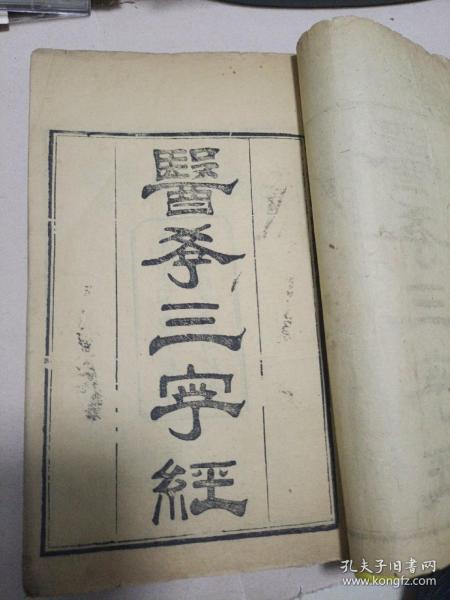 醫孝三字經
孔夫子旧书网
www.kongfz.com